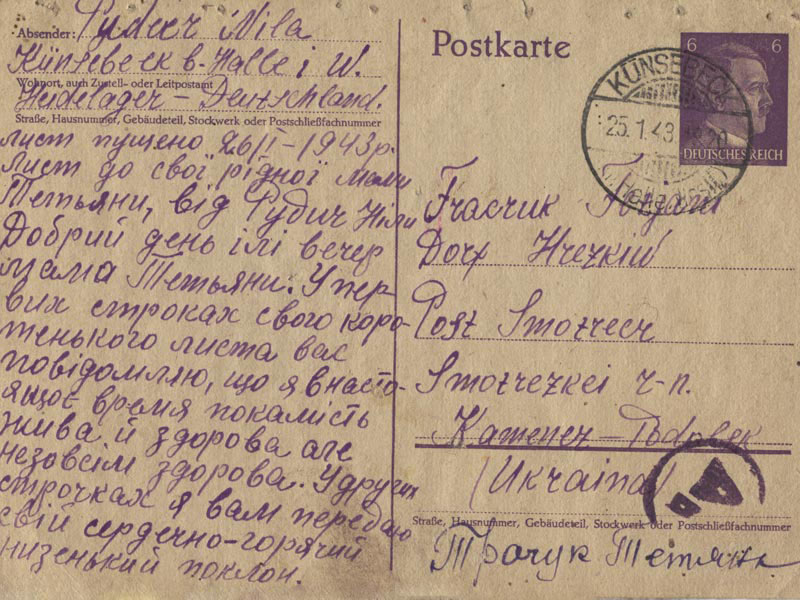 Absender: Рудеег Nila
Künsebeck b. Halle i W.
Wohnort, auch Zustell- oder Leitpostamt
Heidelager – Deutschland.
Straße, Hausnummer, Gebäudeteil, Stockwerk oder Postschließfachnummer
лист пущено 26/I–1943р.
лист до свої рідної мами
Тетьяни, від Рудич Ніли
Добрий день ілі вечер
мама Тетьяни. У пер-
вих строках свого коро-
тенького листа вас
повідомляю, що я внасто-
ящоє время покамість
жива й здорова але
незовсім здорова. У других
строчках я вам передаю
свій сердечно-горячий
низенький поклон.
Postkarte
6 6
DEUTSCHES REICH
KÜNSEBECK
25.1.43
Dorf Hrezkiw
Post Smotrecr
Smotrezkei r-n.
Kamenez–Podolsk
(Ukraina)
Straße, Hausnummer, Gebäudeteil, Stockwerk oder Postschließfachnummer
Трачук Тетяна